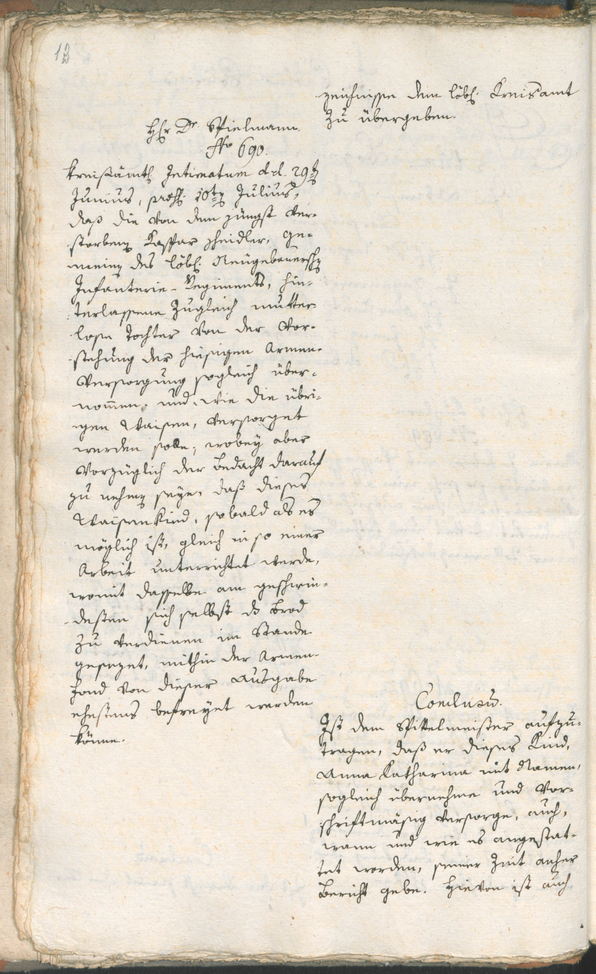 12
zeichnisse dem löbl. Kreisamt
zu übergeben.
H̄ Dr Spielmann
No 690.
Kreisämtl. Intimatum dd. 29t
Junius, præs. 10ty Julius,
daß die von dem jüngst ver-
storbenen Kaspar Zheidler, ge-
meinen des löbl. Neugebauerschen
Infanterie-Regiments, hin-
terlassene zugleich mutter
lose Tochter von der Vor-
stehung der hiesigen Armen-
Versorgung sogleich über-
nommen, und wie die übri-
gen Waisen, versorget
werden solle; wobey aber
vorzüglich der Bedacht darauf
zu nehmen seye, daß dieses
Waisenkind, sobald als es
möglich ist, gleich in so einer
Arbeit unterrichtet werde,
womit dasselbe am geschwin-
desten sich selbst ds Brod
zu verdienen im Stande
gesezet, mithin der Armen-
fond von dieser Ausgabe
ehestens befreyet werden
könne.
Conclusum.
Ist dem Spitelmeister aufzu-
tragen, daß er dieses Kind,
Anna Katharina mit Namen,
sogleich übernehme und vor-
schriftmäsig versorge, auch,
wann und wie es angestal-
tet worden, seiner Zeit anher
Bericht gebe. Hievon ist auch